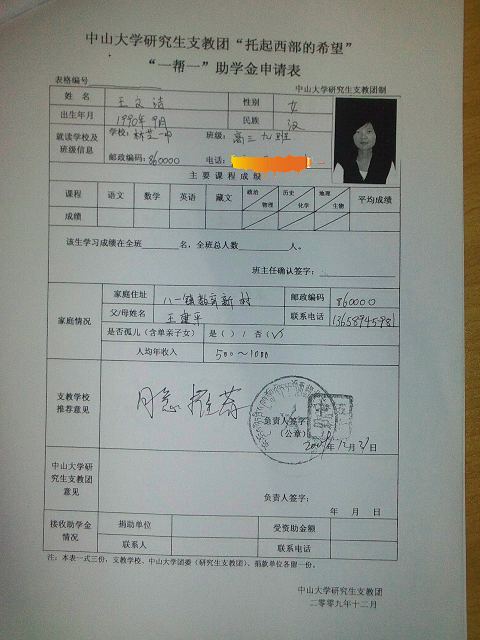 中山大学研究生支教团“托起西部的希望”
“一帮一”助学金申请表
表格编号 中山大学研究生支教团制
姓 名 王文洁 性别 女
出生年月 1990年9月 民族 汉
就读学校及班级信息 学校：林芝一中 班级：高三九班
邮政编码：860000 电话：
主 要 课 程 成 绩
课程 语文 数学 英语 藏文 政治 物理 历史 化学 地理 生物 平均成绩
成绩
该生学习成绩在全班 名，全班总人数 人。
班主任确认签字：
家庭情况 家庭住址 八一镇教育新村 邮政编码 860000
父/母姓名 王建平 联系电话 13658945981
是否孤儿（含单亲子女） 是（ ）/ 否（√）
人均年收入 500～1000
支教学校推荐意见 同意推荐
负责人签字：
（公章）
2009年12月31日
中山大学研究生支教团意见
负责人签字：
年 月 日
接收助学金情况 捐助单位 受资助金额
联系人 联系电话
注：本表一式三份，支教学校、中山大学团委（研究生支教团）、捐款单位各留一份。
中山大学研究生支教团
二零零九年十二月